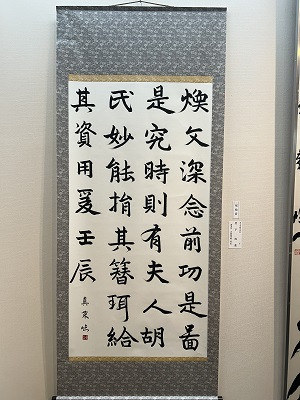 煥文深念前功是啚
是究時則有夫人胡
氏妙能捐其簪珥給
其資用爰壬辰